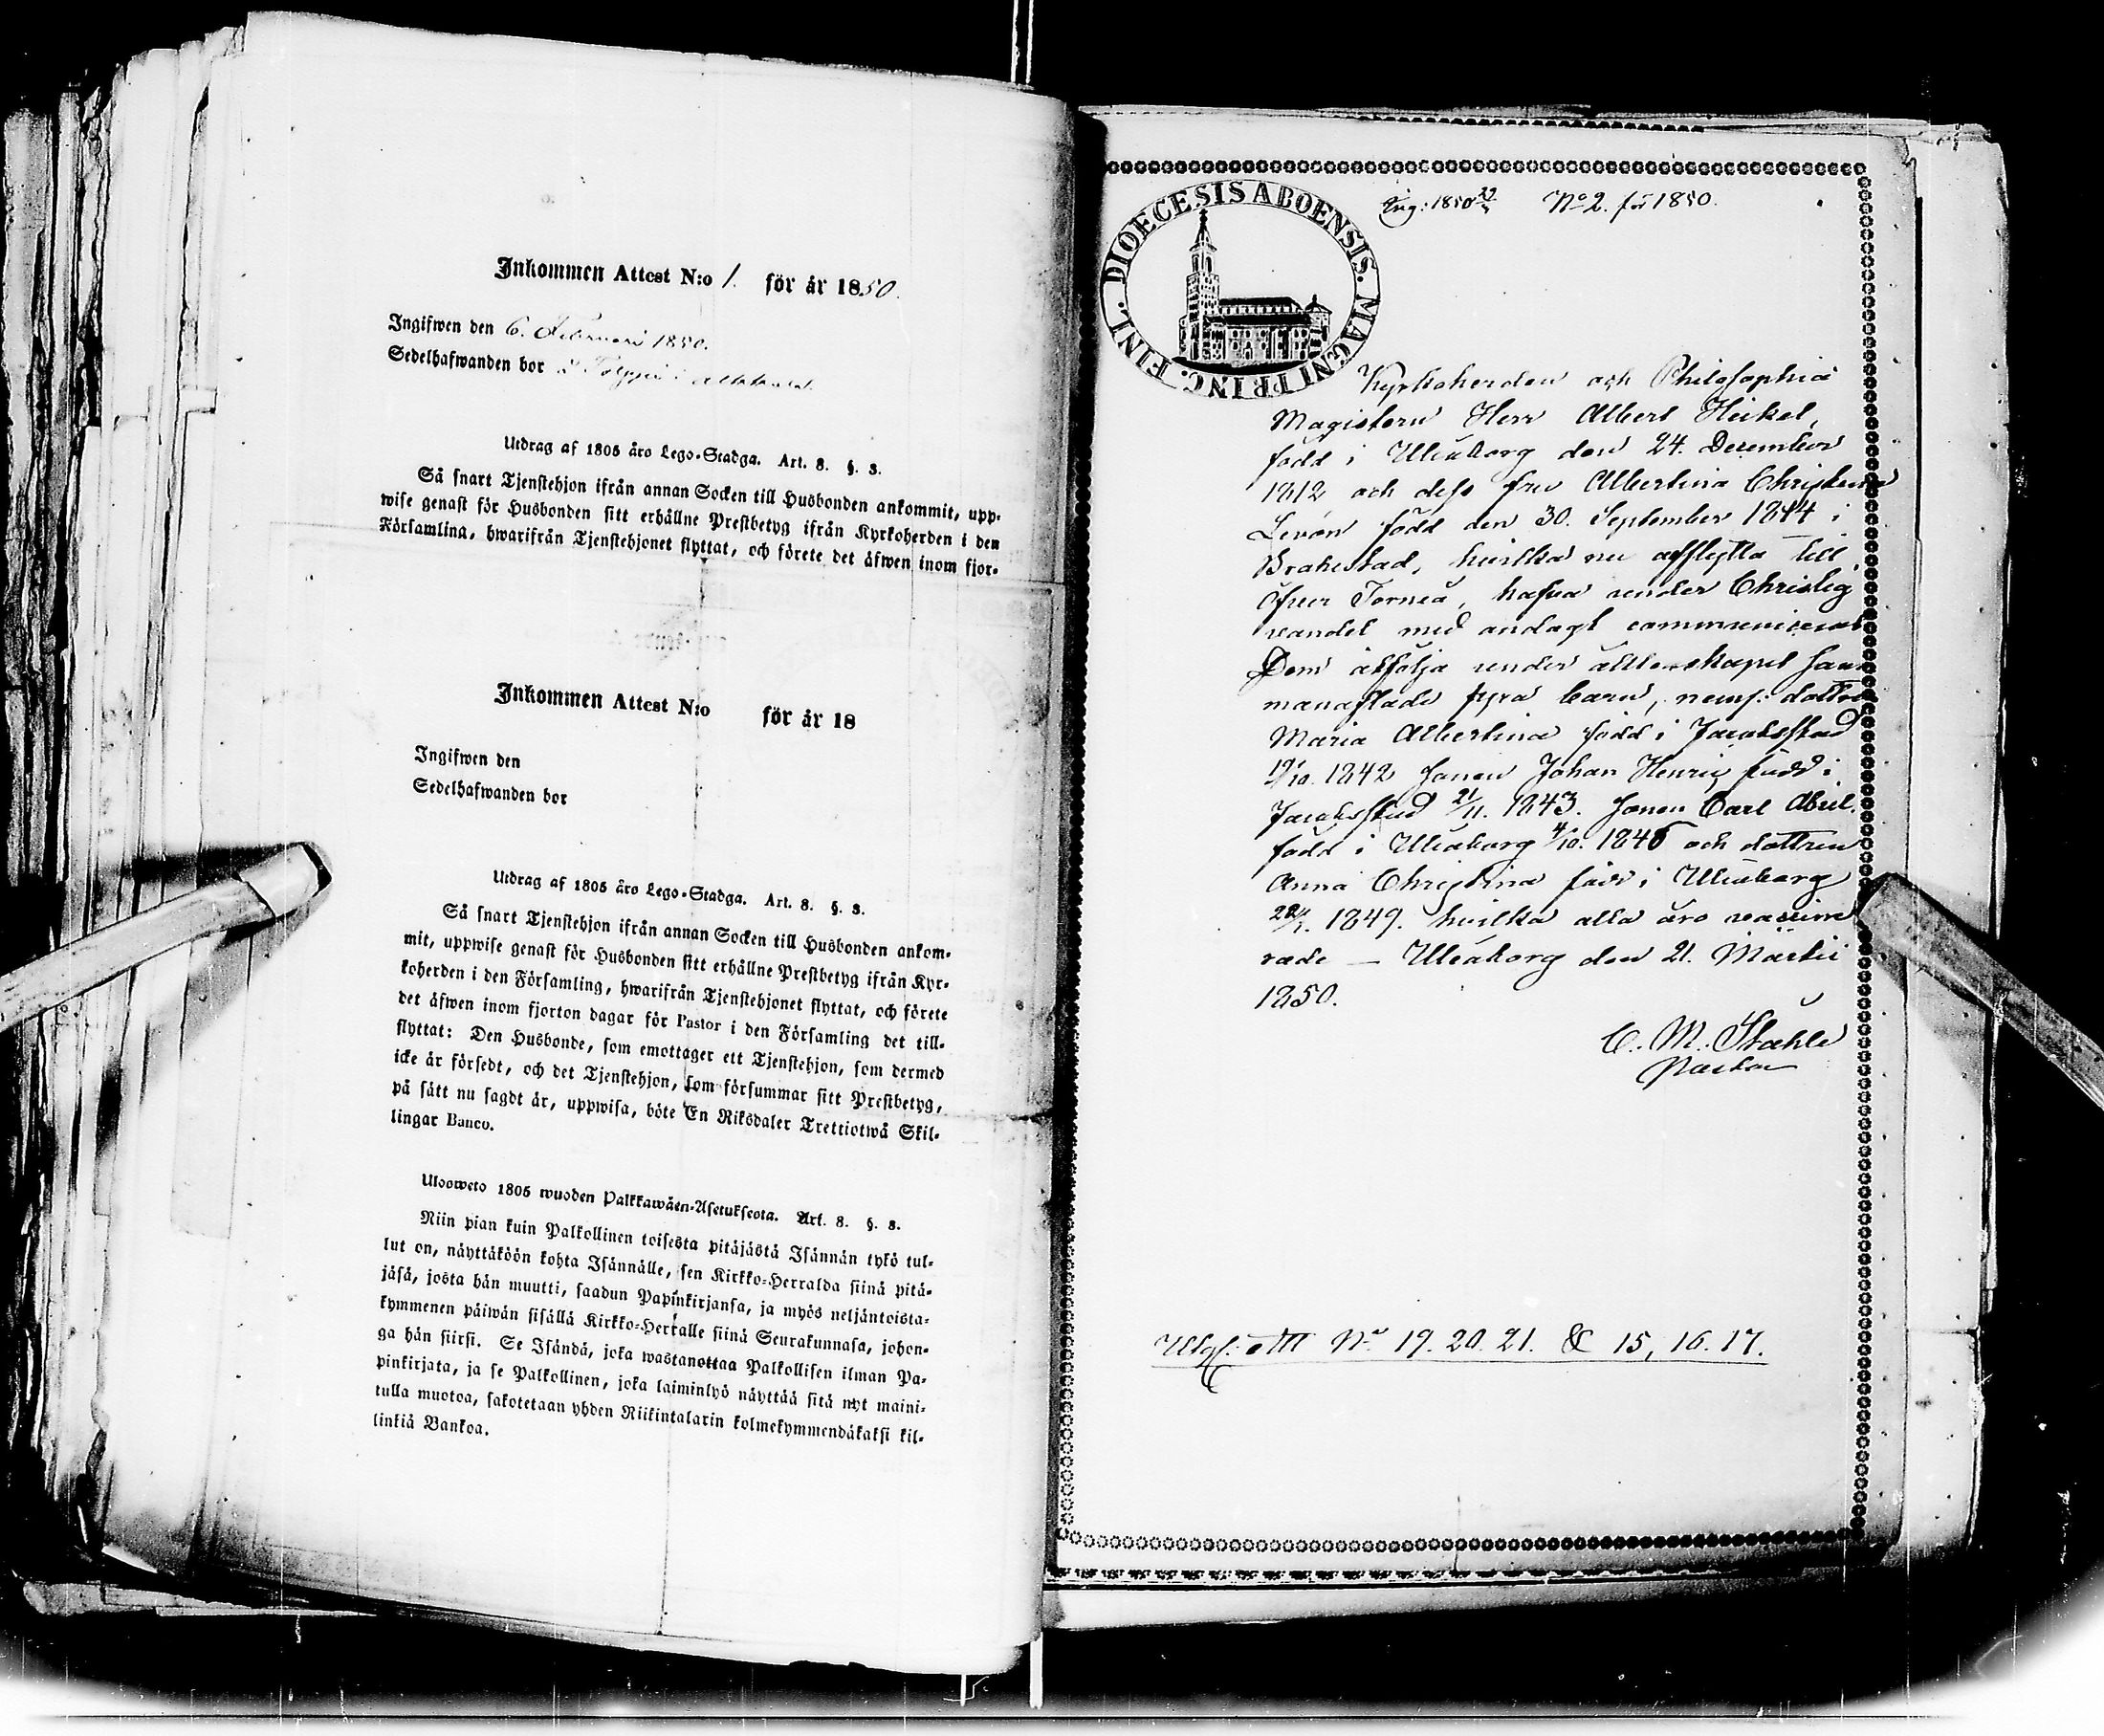 Inkommen Attest N:o 1. för år 1850.
Ingifwen den 6. Februari 1850.
Sedelhafwanden bor
Utdrag af 1805 års Lego-Stadga. Art. 8. §. 3.
Så snart Tjenstehjon ifrån annan Socken till Husbonden ankommit, upp-
wise genast för Husbonden sitt erhållne Prestbetyg ifrån Kyrkoherden i den
Församling, hwarifrån Tjenstehjonet flyttat, och förete det äfwen inom fjor-
Inkommen Attest N:o för år 18
Ingifwen den
Sedelhafwanden bor
Utdrag af 1805 års Lego-Stadga. Art. 8. §. 3.
Så snart Tjenstehjon ifrån annan Socken till Husbonden ankom-
mit, uppwise genast för Husbonden sitt erhållne Prestbetyg ifrån Kyr-
koherden i den Församling, hwarifrån Tjenstehjonet flyttat, och förete
det äfwen inom fjorton dagar för Pastor i den Församling det till-
flyttat: Den Husbonde, som emottager ett Tjenstehjon, som dermed
icke är försedt, och det Tjenstehjon, som försummar sitt Prestbetyg,
på sätt nu sagdt är, uppwisa, böte En Riksdaler Trettiotwå Skil-
lingar Banco.
Ulosweto 1805 wuoden Palkkawäen-Asetuksesta. Art. 8. §. 3.
Niin pian kuin Palkollinen toisesta pitäjästä Isännän tykö tul-
lut on, näyttäköön kohta Isännälle, sen Kirkko-Herralda siinä pitä-
jäsä, josta hän muutti, saadun Papinkirjansa, ja myös neljäntoista-
kymmenen päiwän sisällä Kirkko-Herralle siinä Seurakunnasa, johon-
ga hän siirsi. Se Isändä, joka wastanottaa Palkollisen ilman Pa-
pinkirjata, ja se Palkollinen, joka laiminlyö näyttää sitä nyt maini-
tulla muotoa, sakotetaan yhden Riikintalarin kolmekymmendäkaksi kil-
linkiä Bankoa.
DIOECESIS ABOENSIS. MAGNI PRINC. FINL.
Ing: 1850 No 2. för 1850.
Kyrkoherden och Philosophiæ
Magistern Herr Albert Heikel,
född i Uleåborg den 24. December
1812 och dess fru Albertina Christina
Levón född den 30. September 1814 i
Brahestad, hvilka nu afflytta till
Öfver Torneå, hafva under Christlig
vandel med andagt communicerat
Dem åtfölja under äktenskapet sam
manaflade fyra barn, nemj: dottren
Maria Albertina född i Jacobsstad
19/10. 1842 Sonen Johan Henric född i
Jacobsstad 21/11. 1843. Sonen Carl Abiel.
född i Uleåborg 4/10. 1846 och dottren
Anna Christina född i Uleåborg
1849. hvilka alla äro vaccine
rade — Uleåborg den 21. Martii
1850.
C. M. Ståhle
Pastor
No 19. 20. 21. & 15, 16. 17.